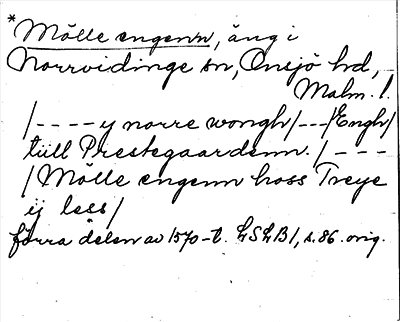 *Mölle engenn, äng i
Norrvidinge sn, Onsjö hd,
Malm. l.
/---- y norre wongh/---/Engh/
tiill Prestegaardenn./---
/Mölle engenn hoss Treye
ij less/
förra delen av 1570-t. LSLB1, s. 86. orig.